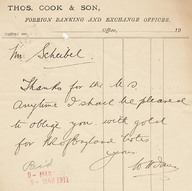 THOS. COOK & SON,
FOREIGN BANKING AND EXCHANGE OFFICES.
Office, 19
Mr Scheibel
Thanks for the U.S.
Anytime I shall be pleased
to oblige you with gold
for Bk of England notes
yours
Paid
9 - MAR
9 - MAR 1911